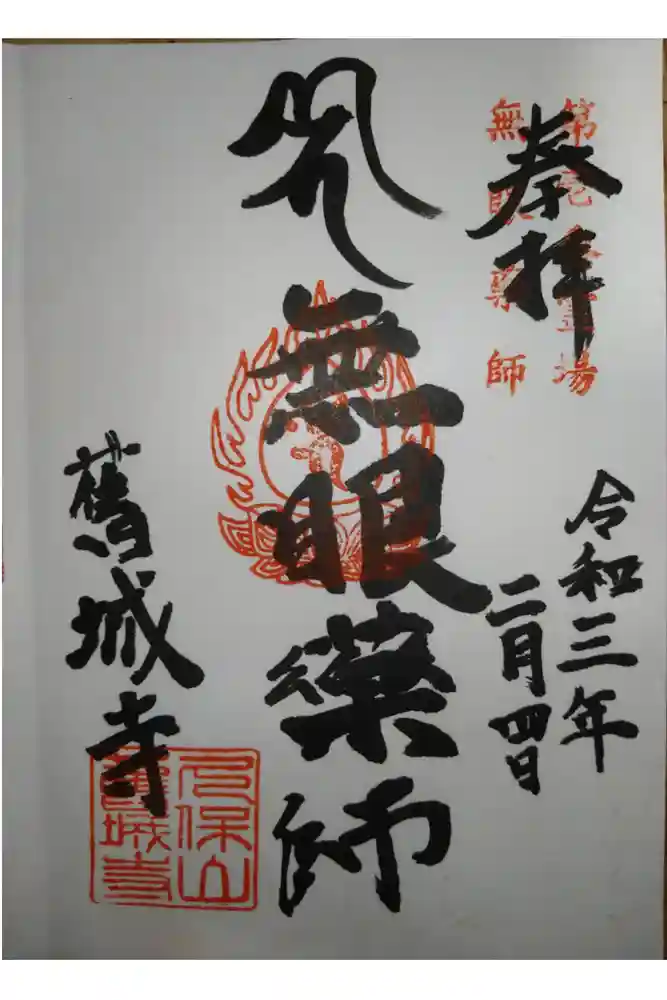 奉拝
第
霊場
無眼薬師
令和三年
二月四日
無眼藥師
舊城寺
久保山
舊城寺